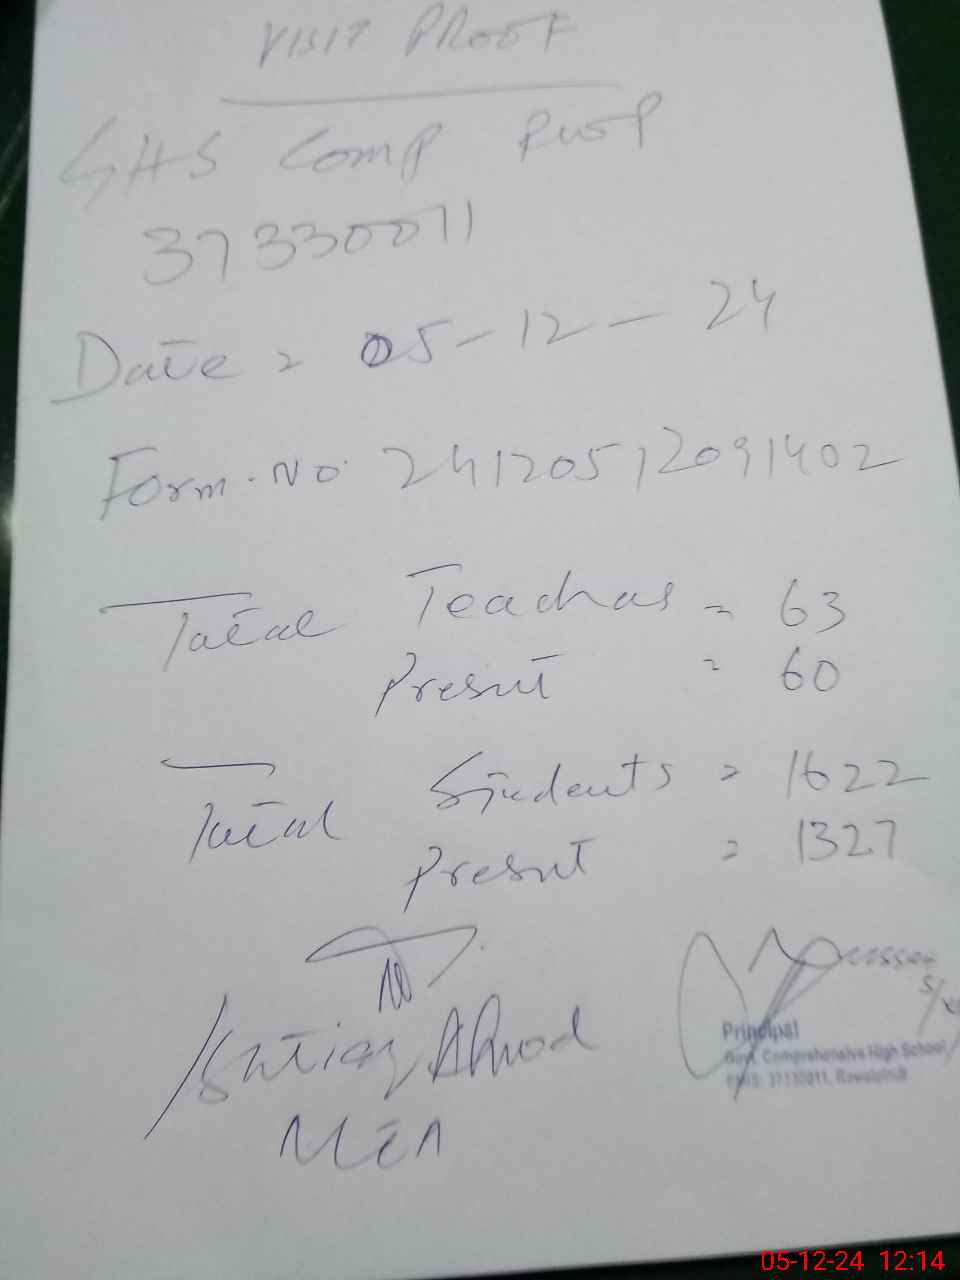 VISIT PROOF
GHS Comp RWP
37330011
Date = 05-12-24
Form. No. 24120512091402
Total Teachers = 63
Present = 60
Total Students = 1622
Present = 1327
Ishtiaq Ahmed
MEA
Principal
Govt. Comprehensive High School
EMIS: 37330011, Rawalpindi
05-12-24 12:14